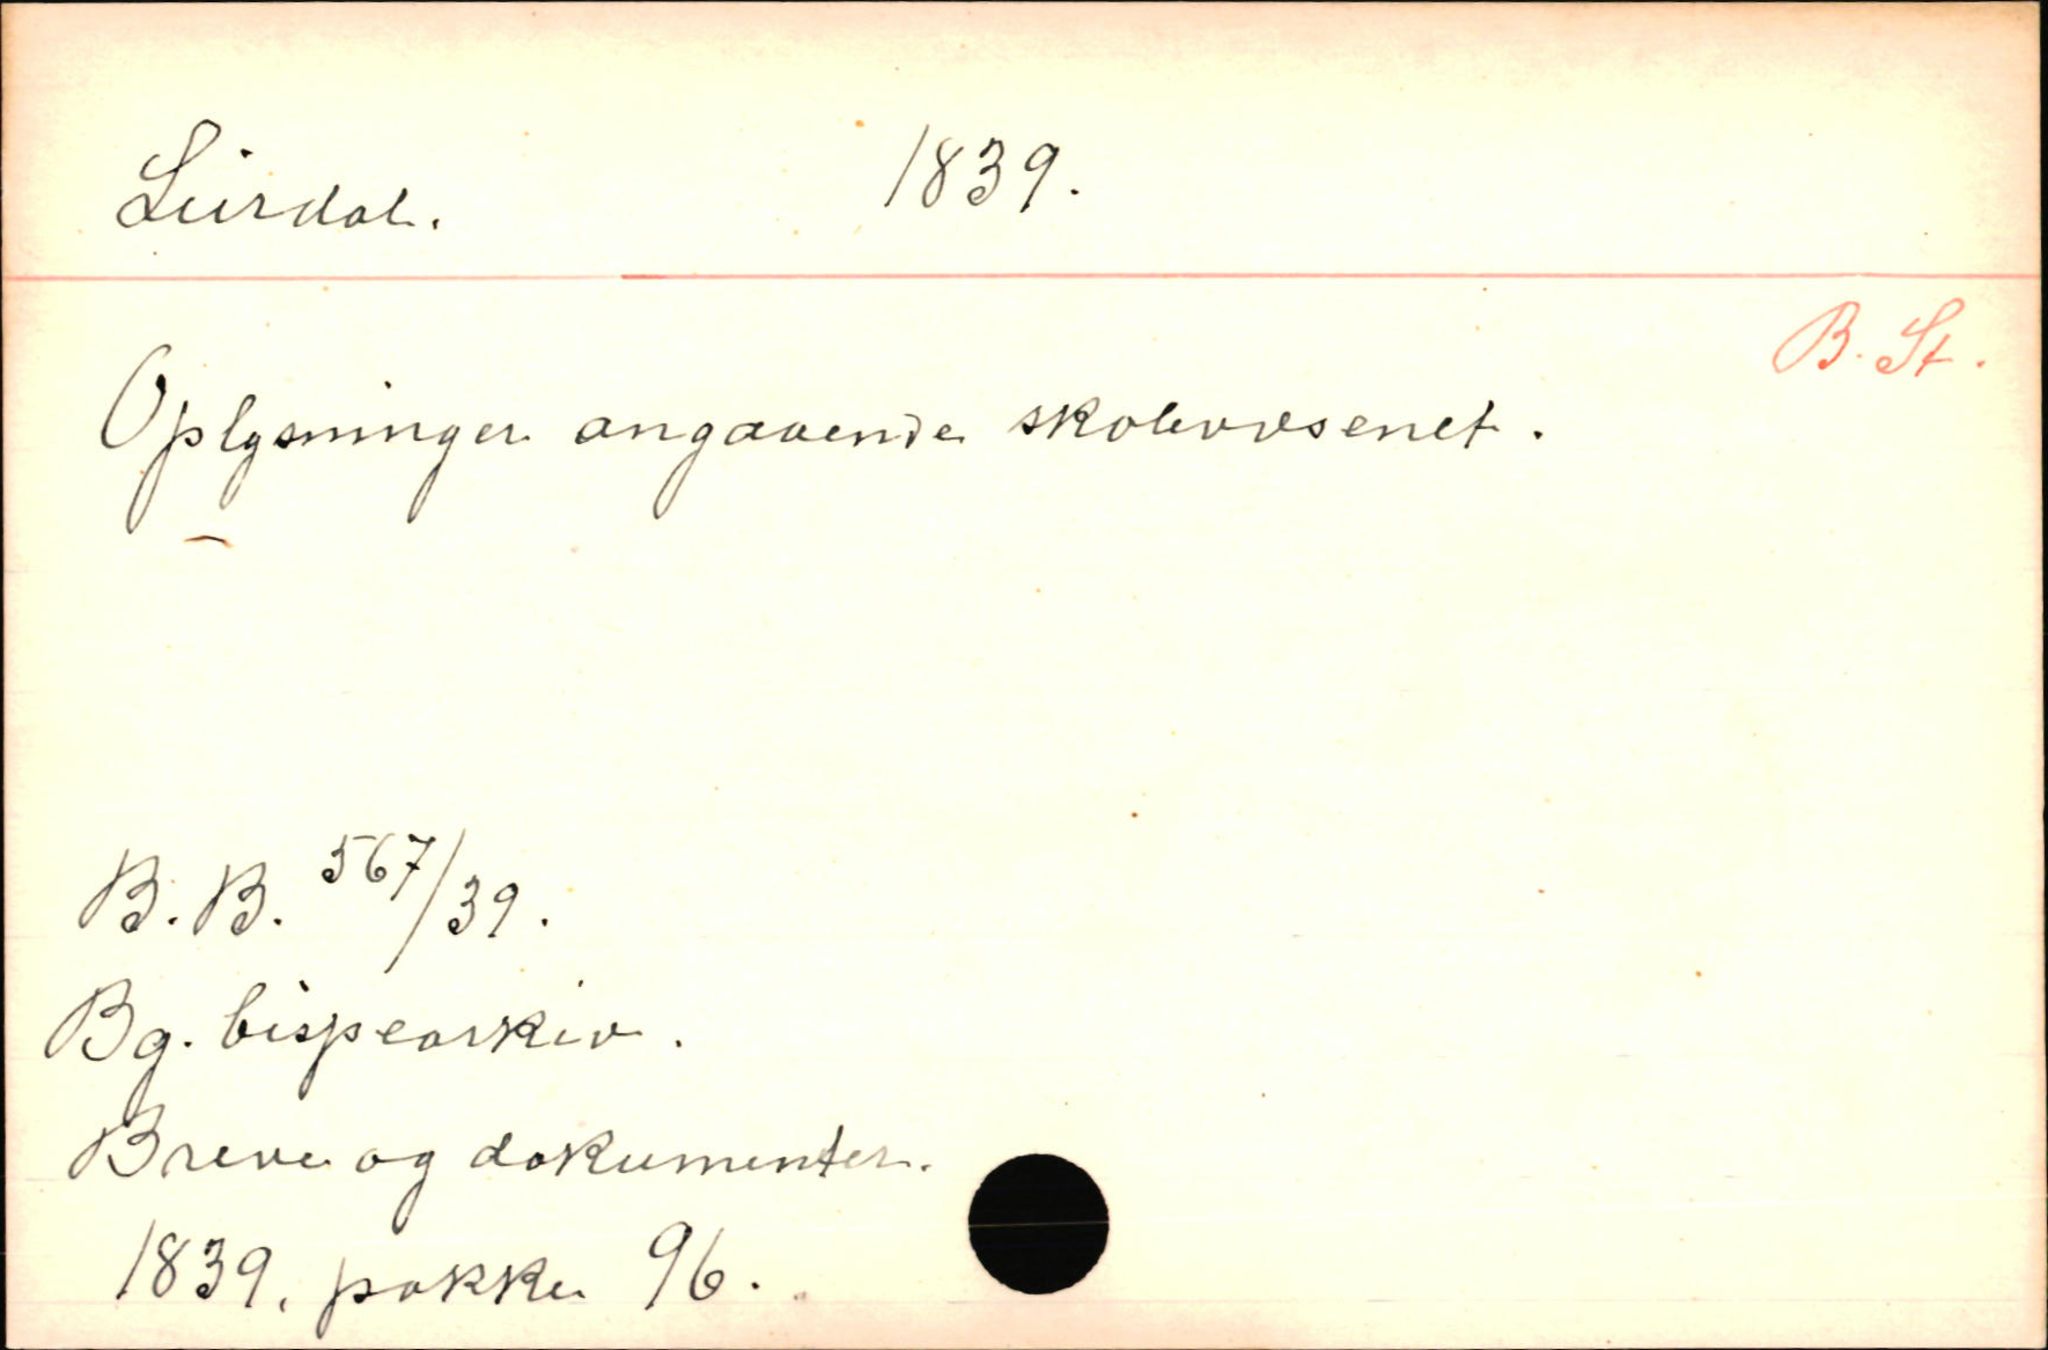 Leirdal. 1839.
B. St.
Oplysninger angaaende skolevæsenet.
B. B. 567/39.
Bg. bispearkiv.
Breve og dokumenter.
1839, pakke 96.